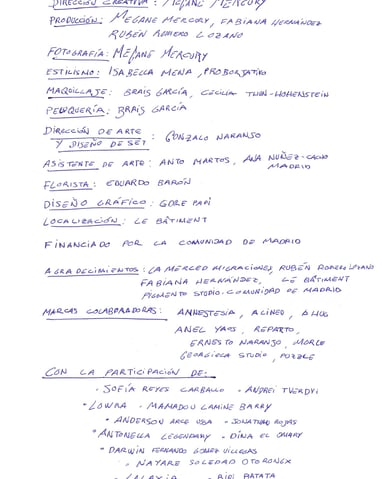 DIRECCIÓN CREATIVA : MEGANE MERCURY
PRODUCCIÓN: MEGANE MERCURY, FABIANA HERNÁNDEZ
RUBÉN ROMERO LOZANO
FOTOGRAFÍA: MEGANE MERCURY
ESTILISMO: ISABELLA MENA, PROBORJATIKO
MAQUILLAJE: BRAIS GARCÍA, CECILIA THUN-HOHENSTEIN
PELUQUERÍA: BRAIS GARCÍA
DIRECCIÓN DE ARTE
Y DISEÑO DE SET : GONZALO NARANJO
ASISTENTE DE ARTE: ANTO MARTOS, ANA NUÑEZ-CACHO
MADRID
FLORISTA: EDUARDO BARÓN
DISEÑO GRÁFICO: GORE PAPI
LOCALIZACIÓN: LE BÂTIMENT
FINANCIADO POR LA COMUNIDAD DE MADRID
AGRADECIMIENTOS: LA MERCED MIGRACIONES, RUBÉN ROMERO LOZANO
FABIANA HERNÁNDEZ, LE BÂTIMENT
PIGMENTO STUDIO-COMUNIDAD DE MADRID
MARCAS COLABORADORAS: ANHESTESIA, ALINEO,
ANEL YAOS, REPARTO,
ERNESTO NARANJO, MORLE
GEORGIECA STUDIO, PUZZLE
CON LA PARTICIPACIÓN DE:
• SOFÍA REYES CARBALLO • ANDREI TVERDYI
• LOWRA • MAMADOU LAMINE BARRY
• ANDERSON ARCE • JONATHAN ROJAS
• ANTONELLA LEGENDARY • DINA EL OMARY
• DARWIN FERNANDO GOMEZ VILLEGAS
• NAYARE SOLEDAD OTORONGX
• LALAXIA • BIDI PATATA